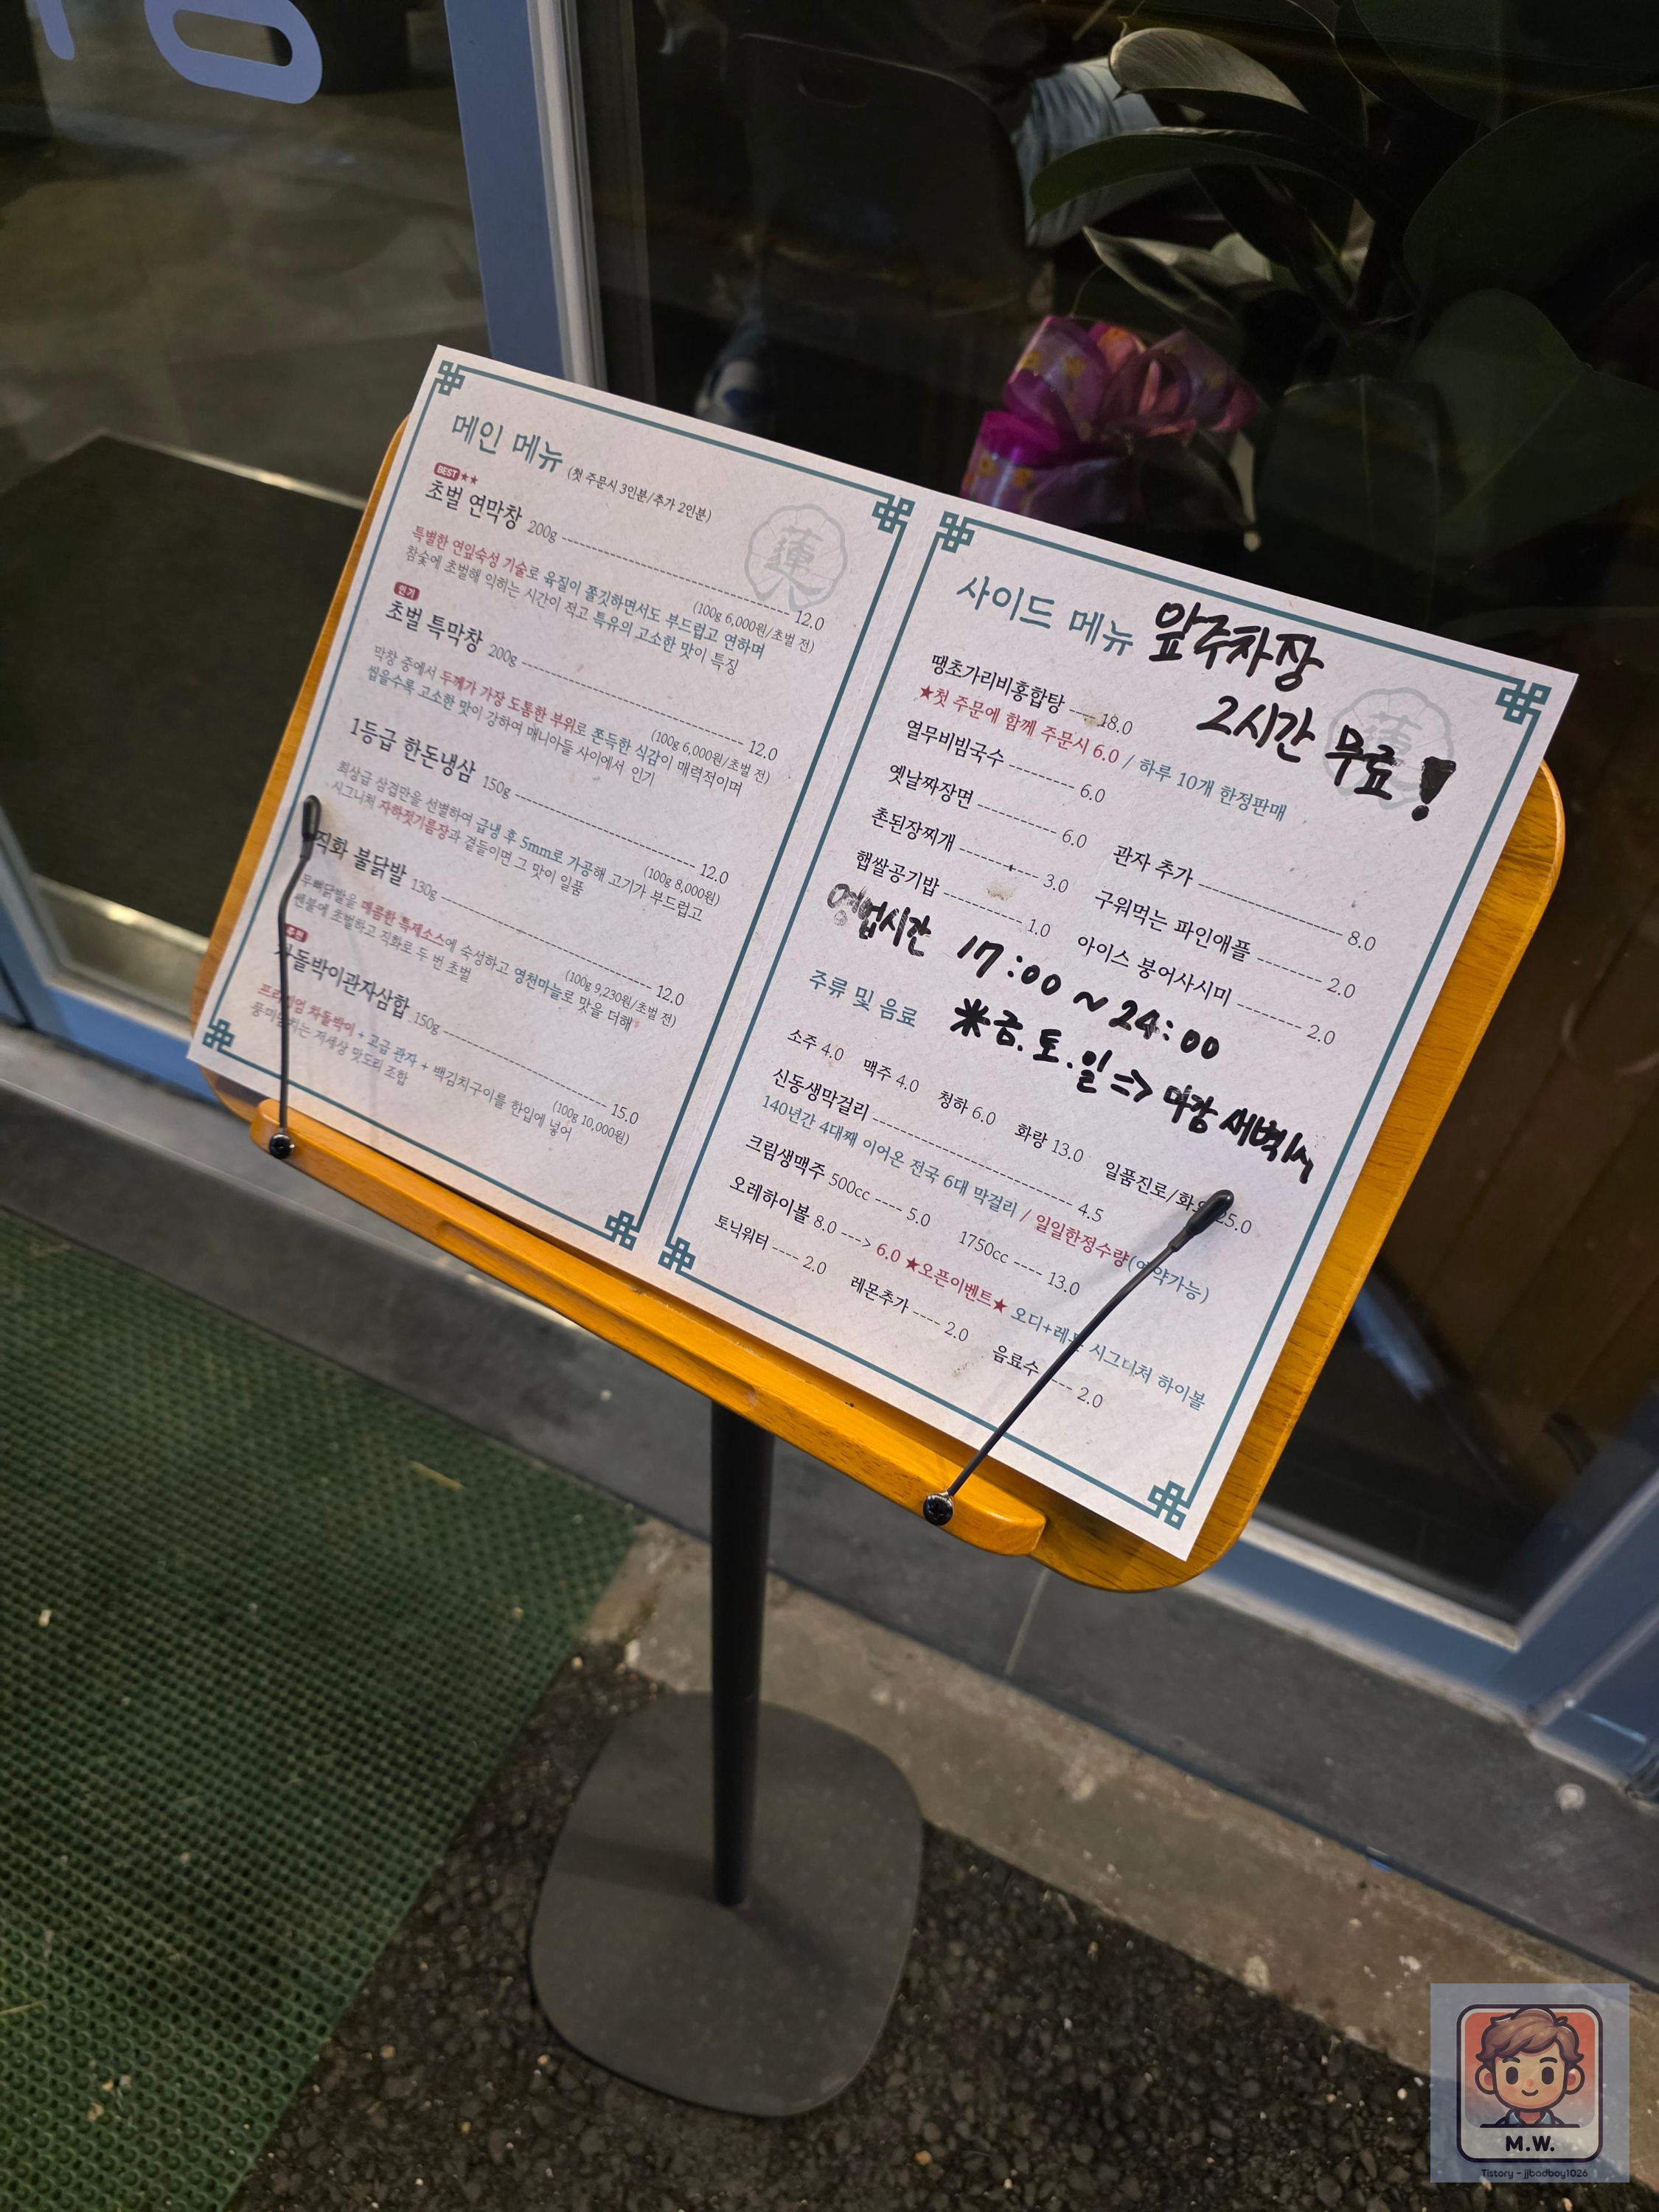 메인 메뉴 (첫 주문시 3인분/추가 2인분)
蓮
BEST ★★
초벌 연막창 200g ---------- 12.0
(100g 6,000원/초벌 전)
특별한 연잎숙성 기술로 육질이 쫄깃하면서도 부드럽고 연하며
참숯에 초벌해 익히는 시간이 적고 특유의 고소한 맛이 특징
인기
초벌 특막창 200g ---------- 12.0
(100g 6,000원/초벌 전)
막창 중에서 두께가 가장 도톰한 부위로 쫀득한 식감이 매력적이며
씹을수록 고소한 맛이 강하여 매니아들 사이에서 인기
1등급 한돈냉삼 150g ---------- 12.0
(100g 8,000원)
최상급 삼겹만을 선별하여 급냉 후 5mm로 가공해 고기가 부드럽고
시그니처 자하젓기름장과 곁들이면 그 맛이 일품
직화 불닭발 130g ---------- 12.0
(100g 9,230원/초벌 전)
무뼈닭발을 매콤한 특제소스에 숙성하고 영천마늘로 맛을 더해
쎈불에 초벌하고 직화로 두 번 초벌
차돌박이관자삼합 150g ---------- 15.0
(100g 10,000원)
프리미엄 차돌박이 + 고급 관자 + 백김치구이를 한입에 넣어
저세상 맛도리 조합
사이드 메뉴
앞주차장
2시간 무료!
蓮
땡초가리비홍합탕 ---- 18.0
★첫 주문에 함께 주문시 6.0 / 하루 10개 한정판매
열무비빔국수 ------- 6.0
옛날짜장면 -------- 6.0
촌된장찌개 -------- 3.0
햅쌀공기밥 -------- 1.0
관자 추가 ---------- 8.0
구워먹는 파인애플 ------- 2.0
아이스 붕어사시미 ------- 2.0
영업시간 17:00 ~ 24:00
※금.토.일 => 마감 새벽1시
주류 및 음료
소주 4.0 맥주 4.0 청하 6.0 화랑 13.0 일품진로/화요 25.0
신동생막걸리 ---------- 4.5
140년간 4대째 이어온 전국 6대 막걸리 / 일일한정수량(예약가능)
크림생맥주 500cc ----- 5.0 1750cc ---- 13.0
오레하이볼 8.0 ---> 6.0 ★오픈이벤트★ 오디+레몬 시그니처 하이볼
토닉워터 ---- 2.0 레몬추가 ---- 2.0 음료수 ---- 2.0
M.W.
Tistory - jjbadboy1026